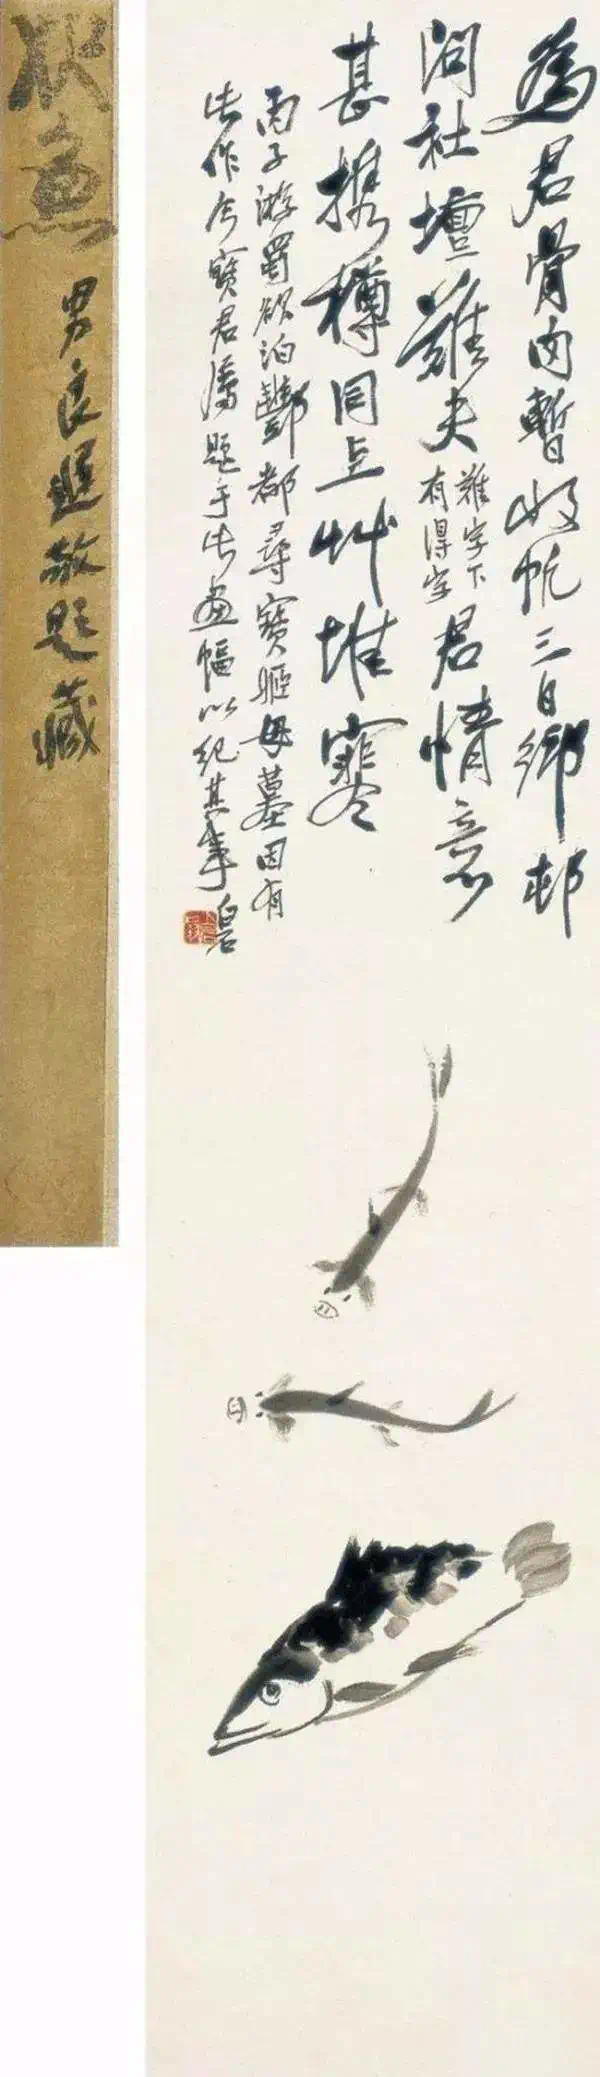 為君骨肉暫收帆三日鄉邨
問社壇難夫難字下有得字君情意
甚携樽同上艸堆寒
丙子游蜀欲泊酆都尋寶姬母墓因有
此作今寶君屬題于此畫幅以紀其事 白石
魚
男良遲敬題藏